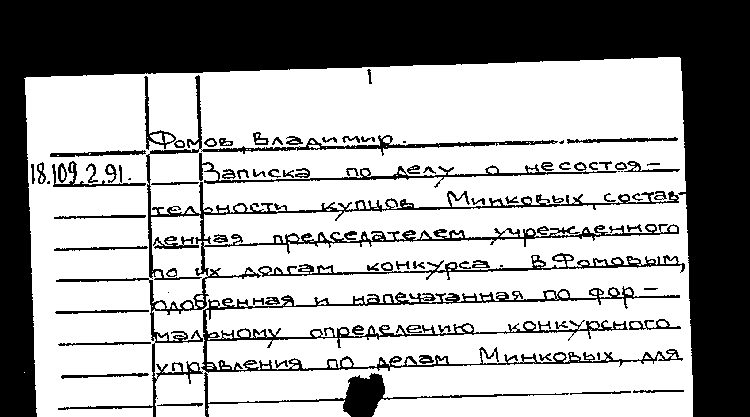 1
Фомов, Владимир.
18.109.2.91. Записка по делу о несостоя-
тельности купцов Минковых, состав-
ленная председателем учрежденного
по их долгам конкурса. В.Фомовым,
одобренная и напечатанная по фор-
мальному определению конкурсного
управления по делам Минковых, для